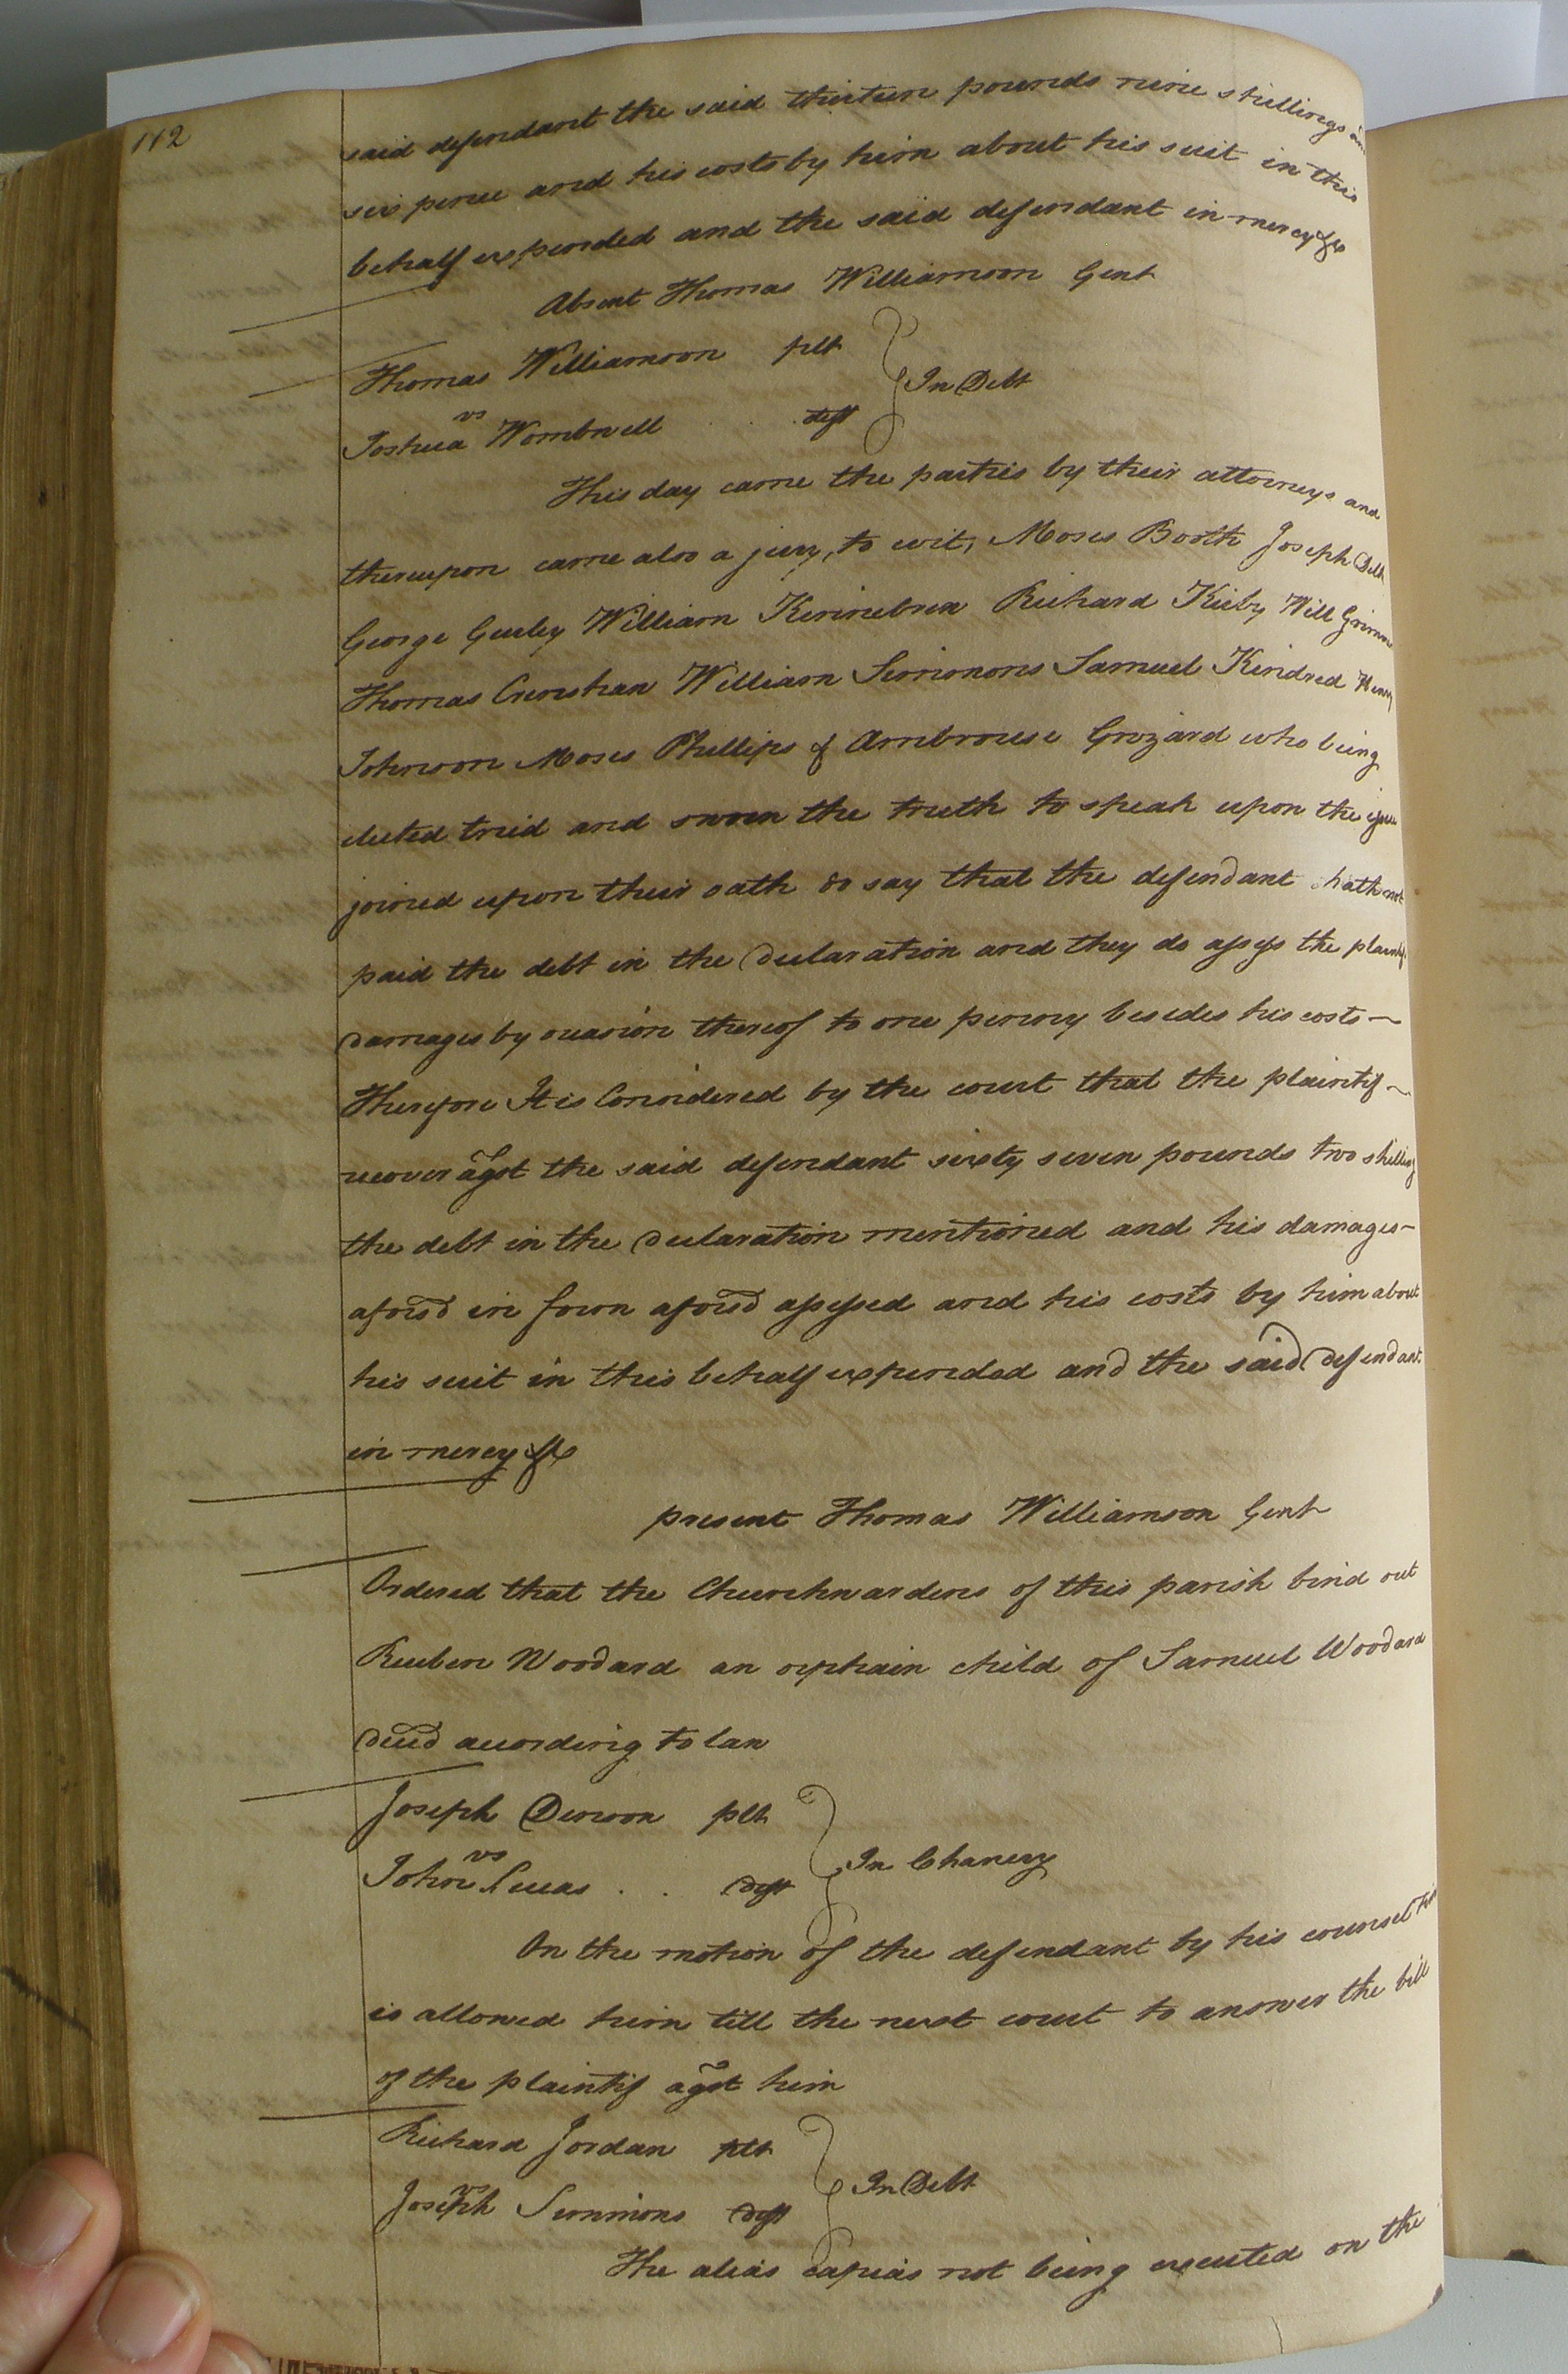 112
said defendant the said thirteen pounds nine shillings an
six pence and his costs by him about his suit in this
behalf expended and the said defendant in mercy &c
Absent Thomas Williamson Gent
Thomas Williamson plt
vs In Debt
Joshua Wombwell . . deft
This day came the parties by their attorneys and
thereupon came also a jury, to wit, Moses Booth Joseph Delk
George Gurley William Kinnebrew Richard Kirby Will Grimme
Thomas Crenshaw William Simmons Samuel Kindred Henry
Johnson Moses Phillips & Ambrouse Grozard who being
elected tried and sworn the truth to speak upon the issue
joined upon their oath do say that the defendant hath not
paid the debt in the declaration and they do assess the plaintif
damages by occasion thereof to one penny besides his costs
Therefore It is Considered by the court that the plaintif
recover agst the said defendant sixty seven pounds two shilling
the debt in the declaration mentioned and his damages
aforsd in form aforsd assessed and his costs by him about
his suit in this behalf expended and the said defendant
in mercy &c
present Thomas Williamson Gent
Ordered that the Churchwardens of this parish bind out
Reuben Woodard an orphain child of Samuel Woodard
decd according to law
Joseph Denson plt
vs In Chancery
John Lucas . . deft
On the motion of the defendant by his counsel time
is allowed him till the next court to answer the bill
of the plaintif agst him
Richard Jordan plt
vs In Debt
Joseph Simmons deft
The alias capias not being executed on the